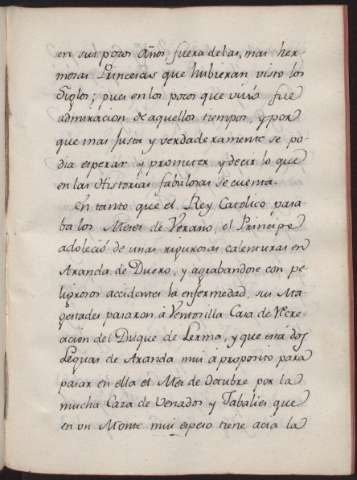 en sus pocos años fuera de las, mas her-
mosas Princesas que hubieran visto los
Siglos; pues en los pocos que vivió fue
admiracion de aquellos tiempos, y por
que mas justa y verdaderamente se po-
dia esperar y prometer y decir lo que
en las Historias fabulosas se cuenta.
En tanto que el Rey Catolico pasa-
ba los Meses de Verano, el Principe
adoleció de unas rigurosas calenturas en
Aranda de Duero, y agrabandose con pe-
ligrosos accidentes la enfermedad, sus Ma-
gestades pasaron à Ventosilla Casa de Recre-
acion del Duque de Lerma, y que está dos
Leguas de Aranda mui a proposito para
pasar en ella el Mes de Octubre por la
mucha Caza de Venados y Jabalies que
en un Monte mui espeso tiene acia la